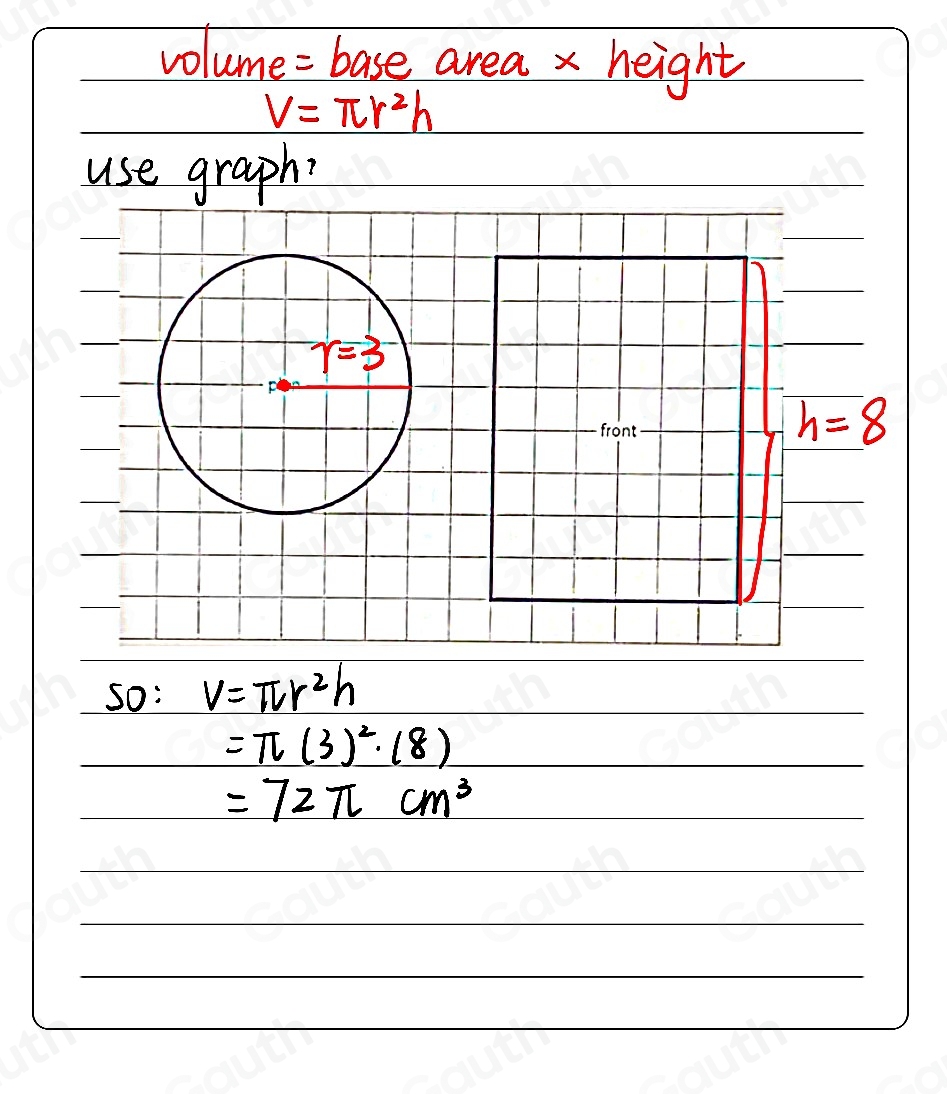 volume = base area × height
V = πr²h
use graph:
r=3
front
h=8
so: V=πr²h
=π(3)²·(8)
=72π cm³
Gauth